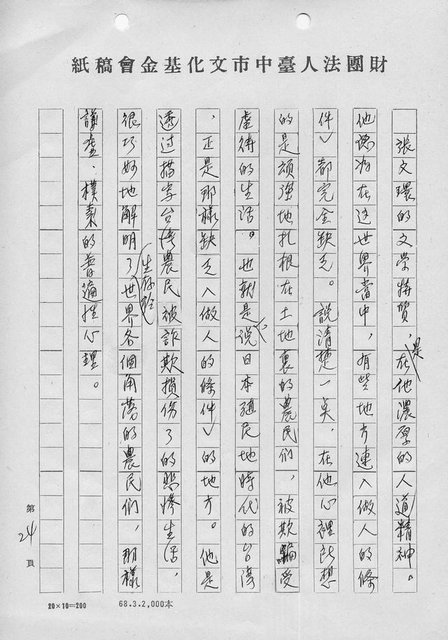 財團法人臺中市文化基金會稿紙
張文環的文学特質，是在他濃厚的人道精神。
他認為在這世界當中，有些地方連人做人的條
件）都完全缺乏。說清楚一奌，在他心裡所想
的是頑強地扎根在土地裏的農民們，被欺騙受
虐待的生活。也就是說日本殖民地時代的台湾
，正是那樣缺乏人做人的條件）的地方。他是
透过描写台湾農民被詐欺損伤了的悲惨生活，
很巧妙地解明了生存於世界各個角落的農民們，那樣
謙虛、樸素的普遍性心理。
第24頁
20×10=200
68.3.2,000本